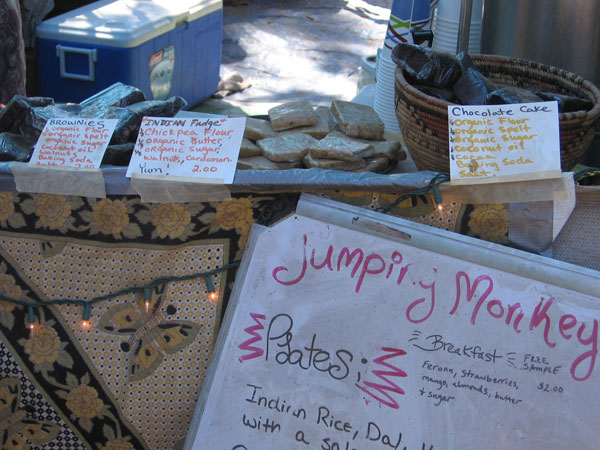 BROWNIES
organic Flour
organic Spelt
organic sugar
Coconut oil
walnuts
Baking Soda
Salt 2.00
INDIAN Fudge
Chickpea Flour
organic Butter,
organic sugar,
walnuts, Cardomon.
Yum! 2.00
Chocolate Cake
organic Flour
organic spelt
organic sugar
coconut oil
cocoa
Baking Soda
Salt
Jumping Monkey
Breakfast
FREE
SAMPLE
strawberries, $2.00
mango, almonds, butter
+ sugar
Plates;
Indian Rice, Dal,
with a